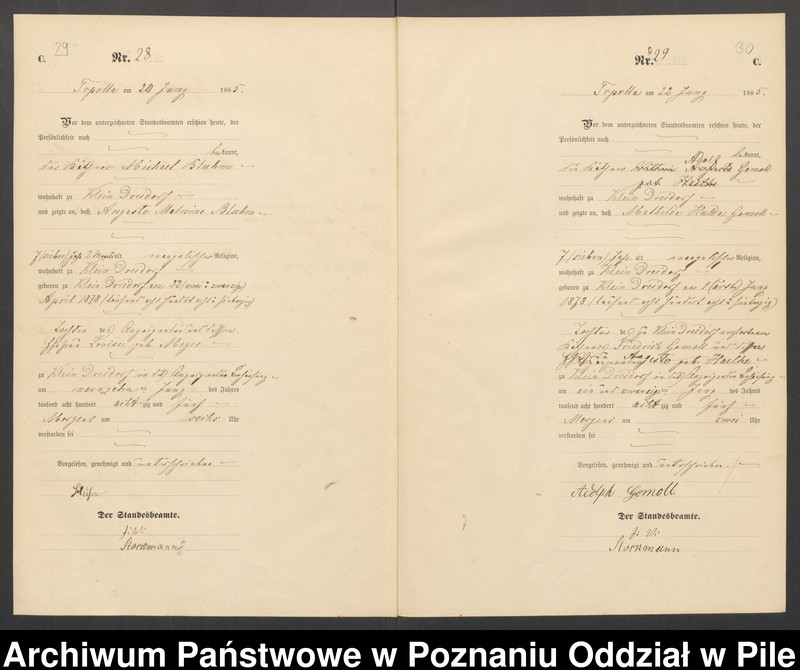 C. 29 Nr. 28
Topolla am 20 Juny 1885.
Vor dem unterzeichneten Standesbeamten erschien heute, der
Persönlichkeit nach
bekannt,
Michael Bluhm
wohnhaft zu Klein Dreidorf
und zeigte an, daß Auguste Malwine Bluhm
7 (sieben) Jahr 2 Monat alt evangelischer Religion,
wohnhaft zu Klein Dreidorf
geboren zu Klein Dreidorf am 22 (zwei u zwanzig)
April 1878 (tausend acht hundert acht u siebenzig)
Tochter des
Ehefrau Louise geb. Meyer
zu Klein Dreidorf in des Behausung
am neunzehn Juny des Jahres
tausend acht hundert achtzig und fünf
Morgens um sechs Uhr
verstorben sei
Vorgelesen, genehmigt und unterschrieben
Bluhm
Der Standesbeamte.
J. V.
Stockmann
Nr. 29 30 C.
Topolla am 22 Juny 1885.
Vor dem unterzeichneten Standesbeamten erschien heute, der
Persönlichkeit nach
Adolf bekannt,
Gomoll
geb. Haelke
wohnhaft zu Klein Dreidorf
und zeigte an, daß Mathilde Hulda Gomoll
7 (sieben) Jahr alt evangelischer Religion,
wohnhaft zu Klein Dreidorf
geboren zu Klein Dreidorf am 1 (erst) Juny
1878 (tausend acht hundert acht u siebenzig)
Tochter des zu Klein Dreidorf verstorbenen
Friedrich Gomoll und dessen
Auguste geb. Haelke
zu Klein Dreidorf in des Behausung
am ein und zwanzig Juny des Jahres
tausend acht hundert achtzig und fünf
Morgens um zwei Uhr
verstorben sei
Vorgelesen, genehmigt und unterschrieben.
Adolph Gomoll
Der Standesbeamte.
J. V.
Stockmann
Archiwum Państwowe w Poznaniu Oddział w Pile